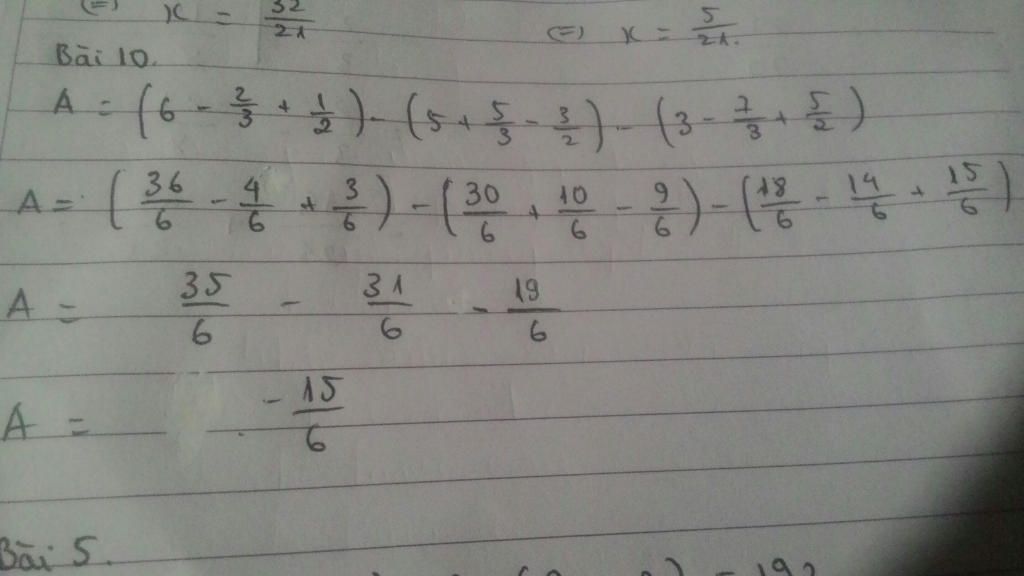 (=) x = 32/21 (=) x = 5/21.
Bài 10.
A = (6 - 2/3 + 1/2) - (5 + 5/3 - 3/2) - (3 - 7/3 + 5/2)
A = (36/6 - 4/6 + 3/6) - (30/6 + 10/6 - 9/6) - (18/6 - 14/6 + 15/6)
A = 35/6 - 31/6 - 19/6
A = - 15/6
Bài 5.